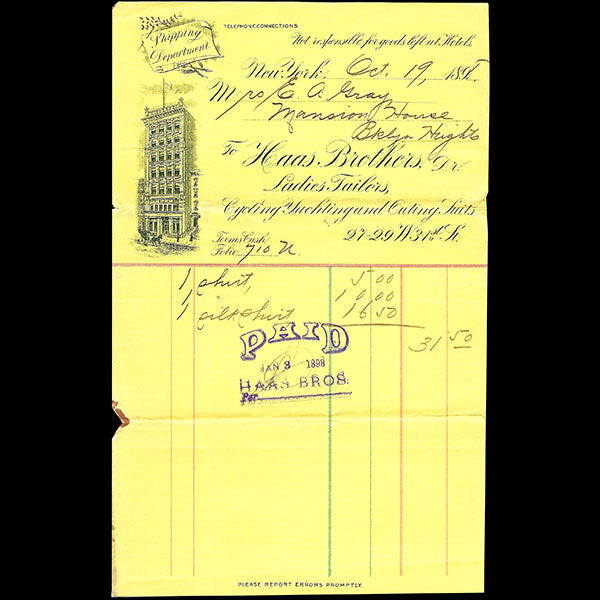 Shipping
Department
TELEPHONE CONNECTIONS
Not responsible for goods left at Hotels.
New York, Oct. 19, 189
Mrs E. A. Gray
Mansion House
Bklyn Heights
To Haas Brothers, Dr.
Ladies Tailors,
Cycling Yachting and Outing Suits
Terms Cash
27-29 W. 31st St.
Folio 710 N.
1 shirt, 5 00
1 10 00
silk shirt 16 50
31 50
PAID
JAN 3 1898
HAAS BROS.
Per
PLEASE REPORT ERRORS PROMPTLY.